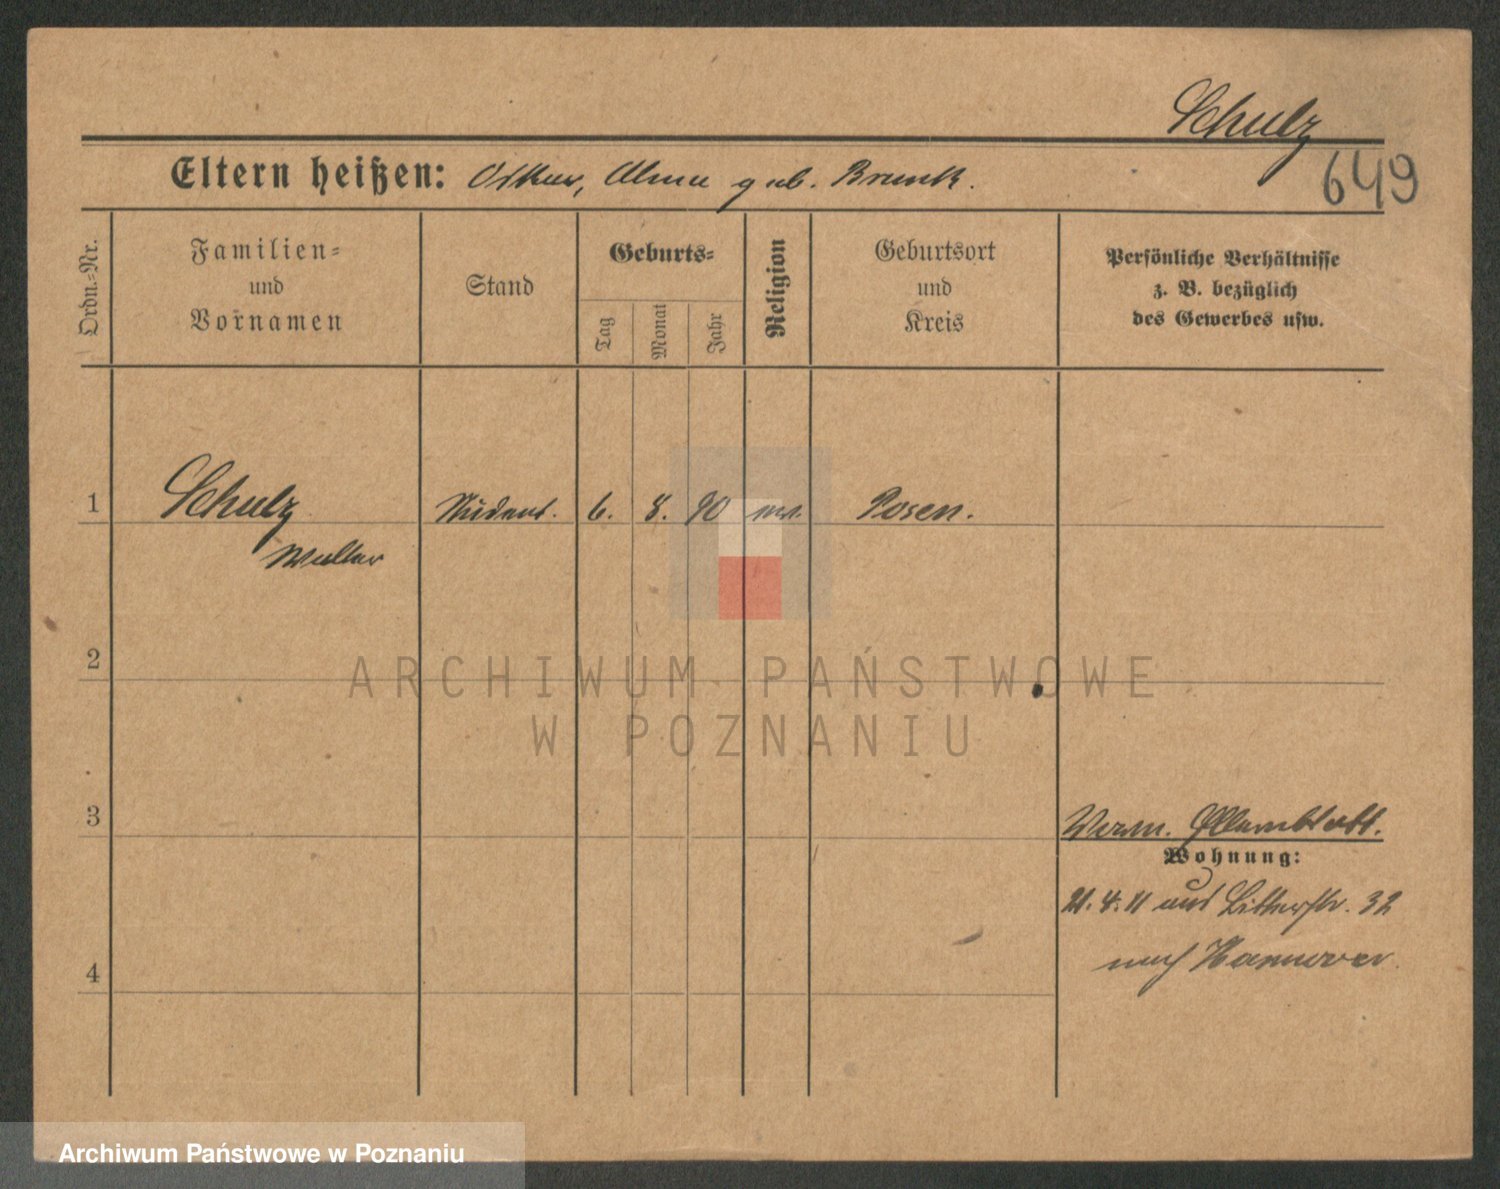 Schulz
649
Eltern heißen: Oskar, Alma geb. Brunk.
Ordn.-Nr.
Familien- und Vornamen
Stand
Geburts-
Tag
Monat
Jahr
Religion
Geburtsort und Kreis
Persönliche Verhältnisse
z. B. bezüglich
des Gewerbes usw.
1 Schulz Student. 6. 8. 90 ev. Posen.
Walter
2
3
Wohnung:
21.4.11 aus Ritterstr. 32
nach Hannover.
4
ARCHIWUM PAŃSTWOWE
W POZNANIU
Archiwum Państwowe w Poznaniu